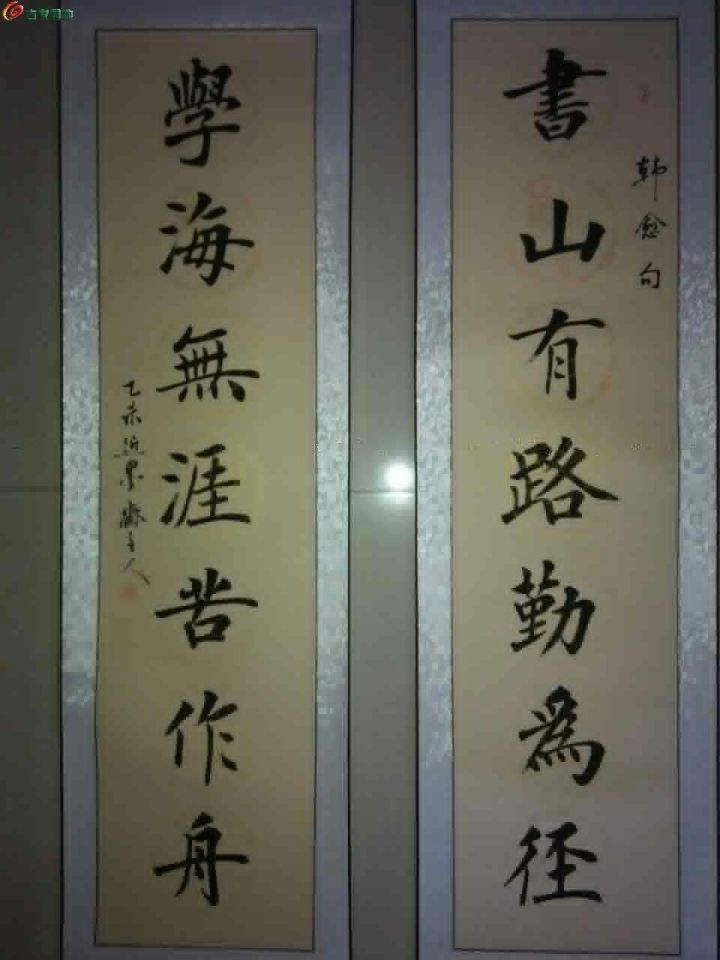 書山有路勤為徑
韩愈句
學海無涯苦作舟
乙未近墨齋主人